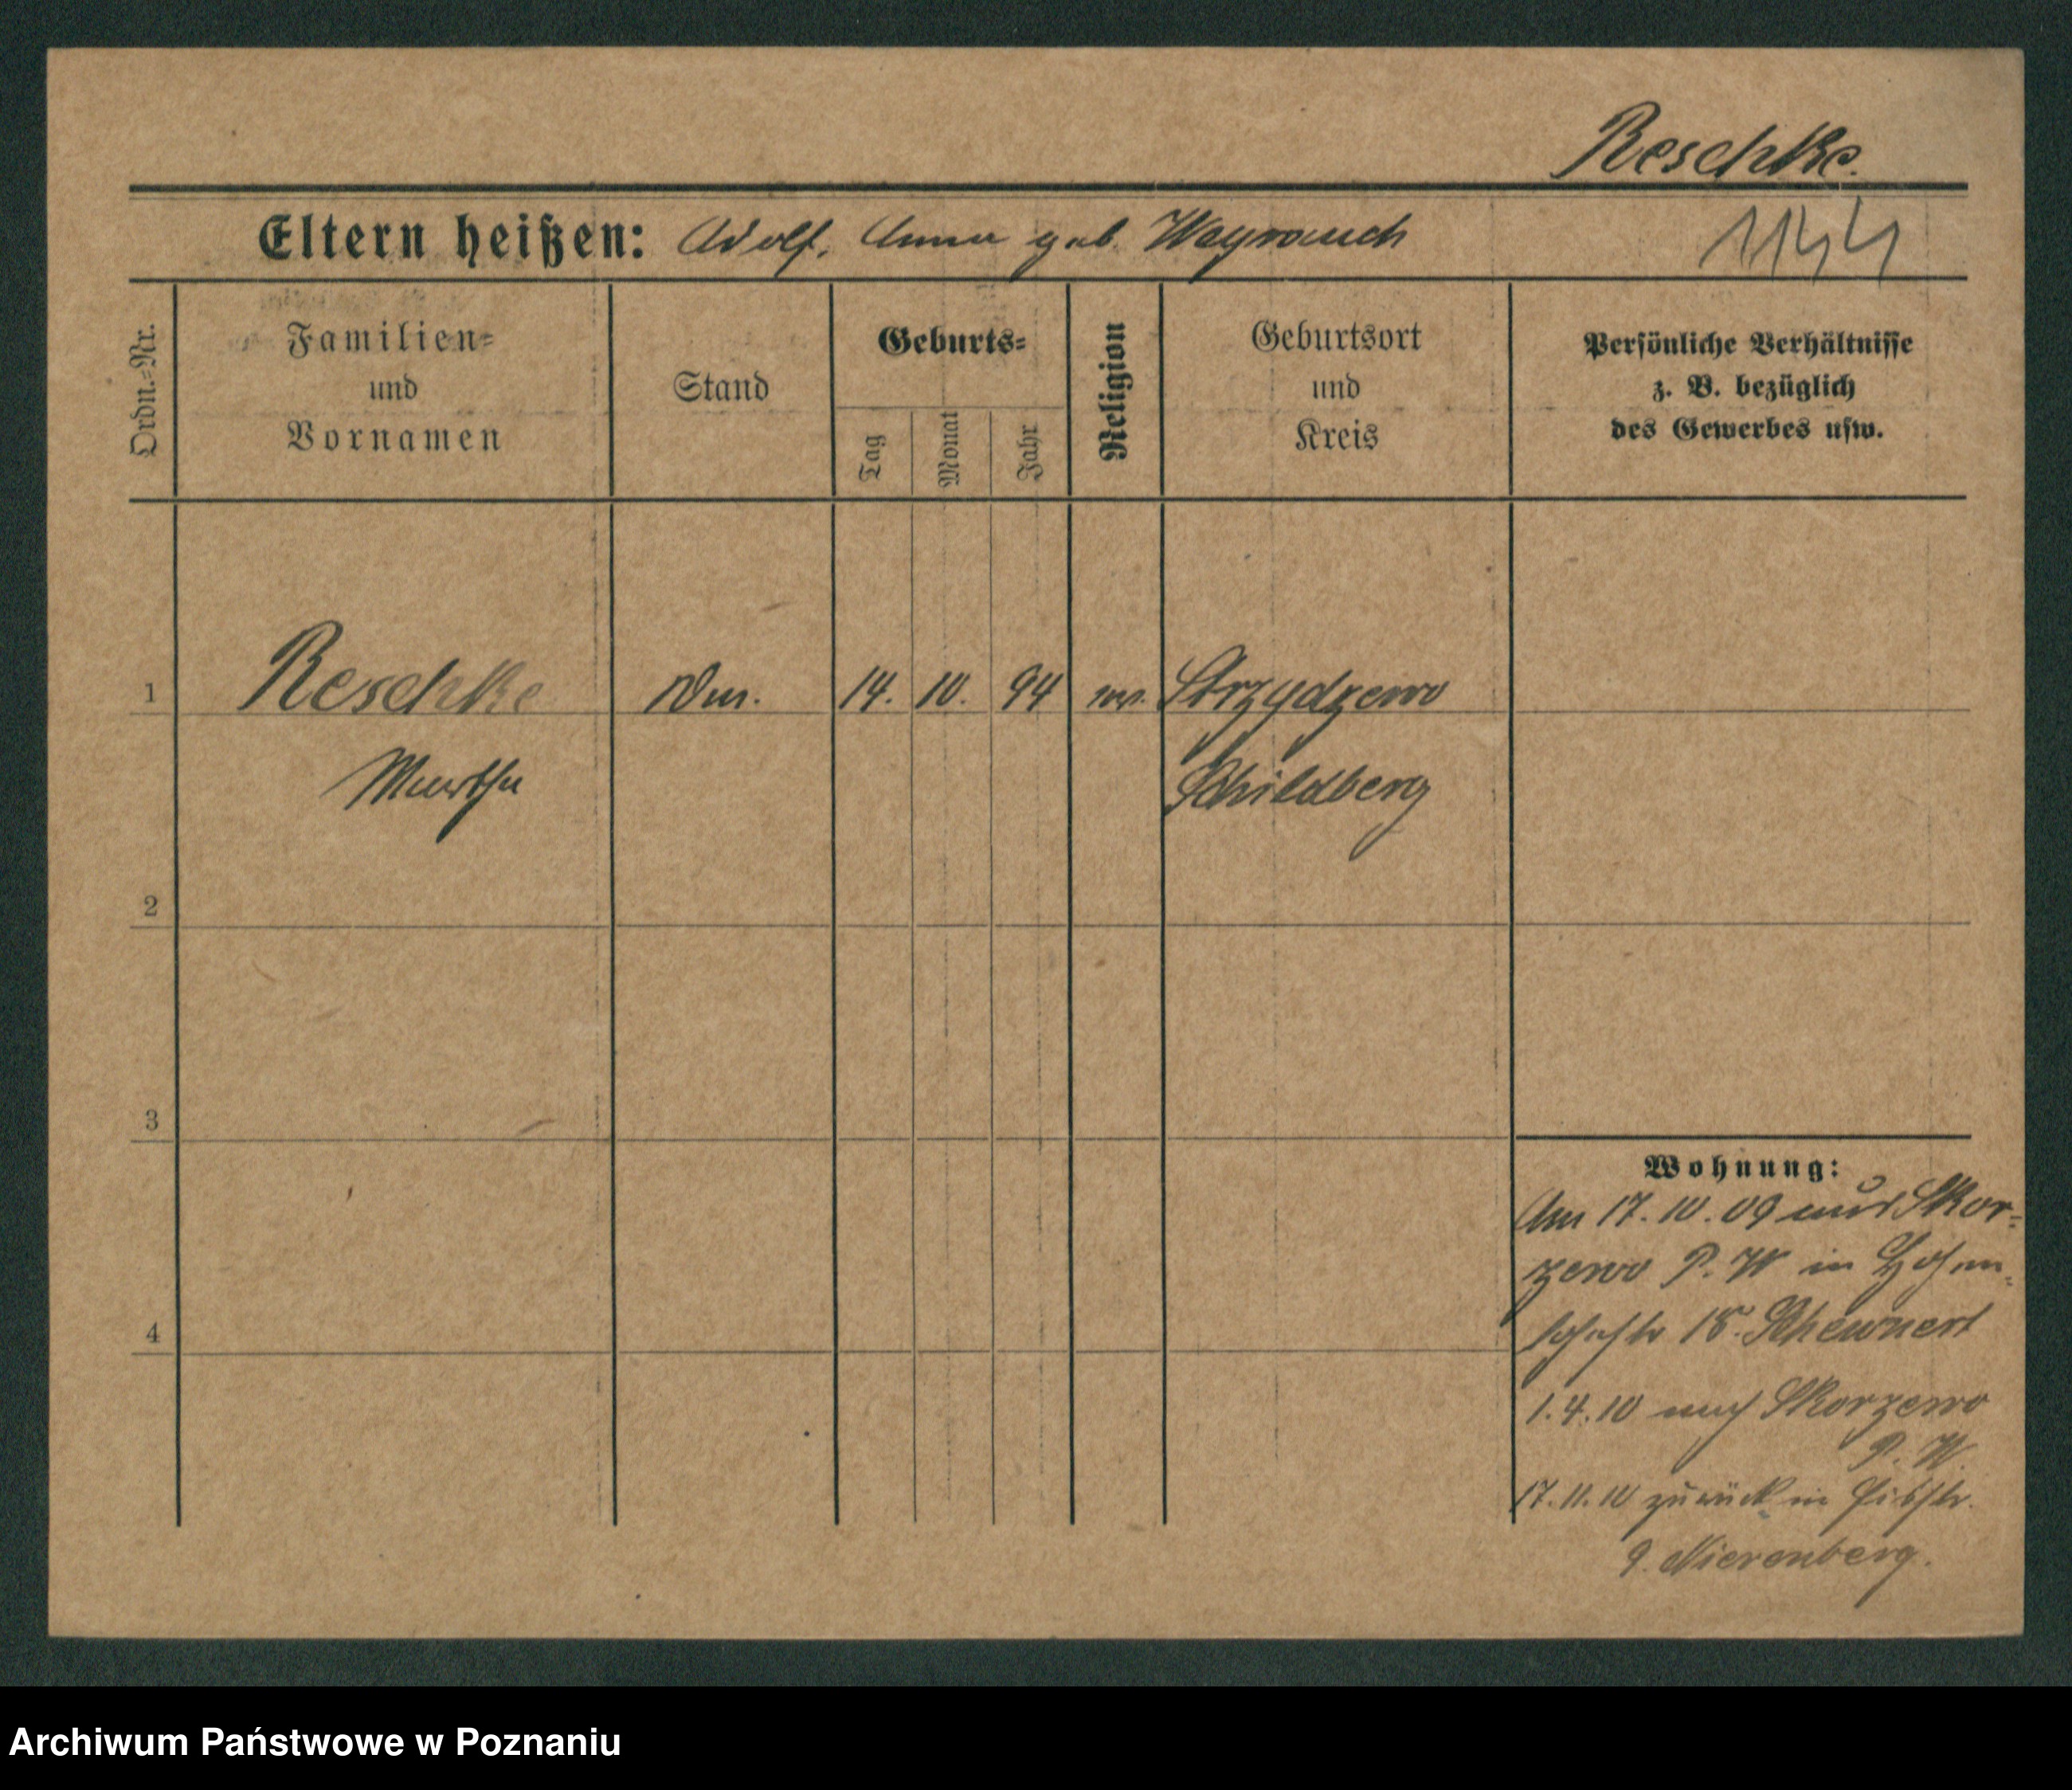 Reschke.
Eltern heißen: Adolf, Anna geb. Weyrauch
1144
Ordn.-Nr.
Familien-
und
Vornamen
Stand
Geburts-
Tag
Monat
Jahr
Religion
Geburtsort
und
Kreis
Persönliche Verhältnisse
z. B. bezüglich
des Gewerbes usw.
1 Reschke 14. 10. 94 Strzydzewo
Martha Schildberg
2
3
4
Wohnung:
Am 17.10.09 aus Skor-
zewo P. W in
18. Scheunert
1.4.10 nach Skorzewo
P. W.
17.11.10 zurück in
9. Nierenberg.
Archiwum Państwowe w Poznaniu